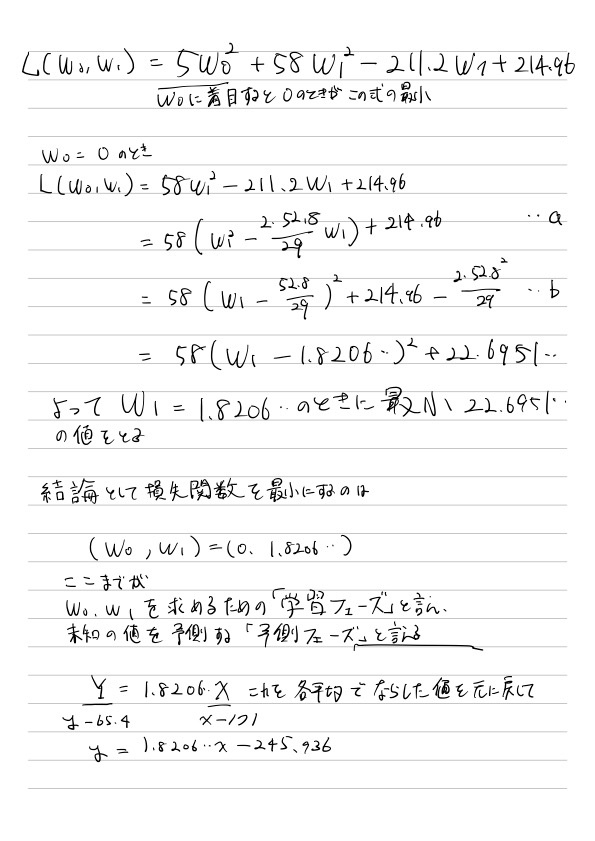 L(W₀, W₁) = 5W₀² + 58W₁² − 211.2W₁ + 214.96
W₀に着目すると0のときがこの式の最小
W₀ = 0 のとき
L(W₀, W₁) = 58W₁² − 211.2W₁ + 214.96
= 58(W₁² − 2・52.8/29 W₁) + 214.96 ‥a
= 58(W₁ − 52.8/29)² + 214.96 − 2・52.8²/29 ‥b
= 58(W₁ − 1.8206‥)² + 22.6951‥
よって W₁ = 1.8206‥のときに最小 22.6951‥
の値をとる
結論として損失関数を最小にするのは
(W₀, W₁) = (0. 1.8206‥)
ここまでが
W₀. W₁ を求めるための「学習フェーズ」と言い、
未知の値を予測する「予測フェーズ」と言える
Y = 1.8206・X これを各平均でならした値を元に戻して
y−65.4 x−171
y = 1.8206‥x − 245.936